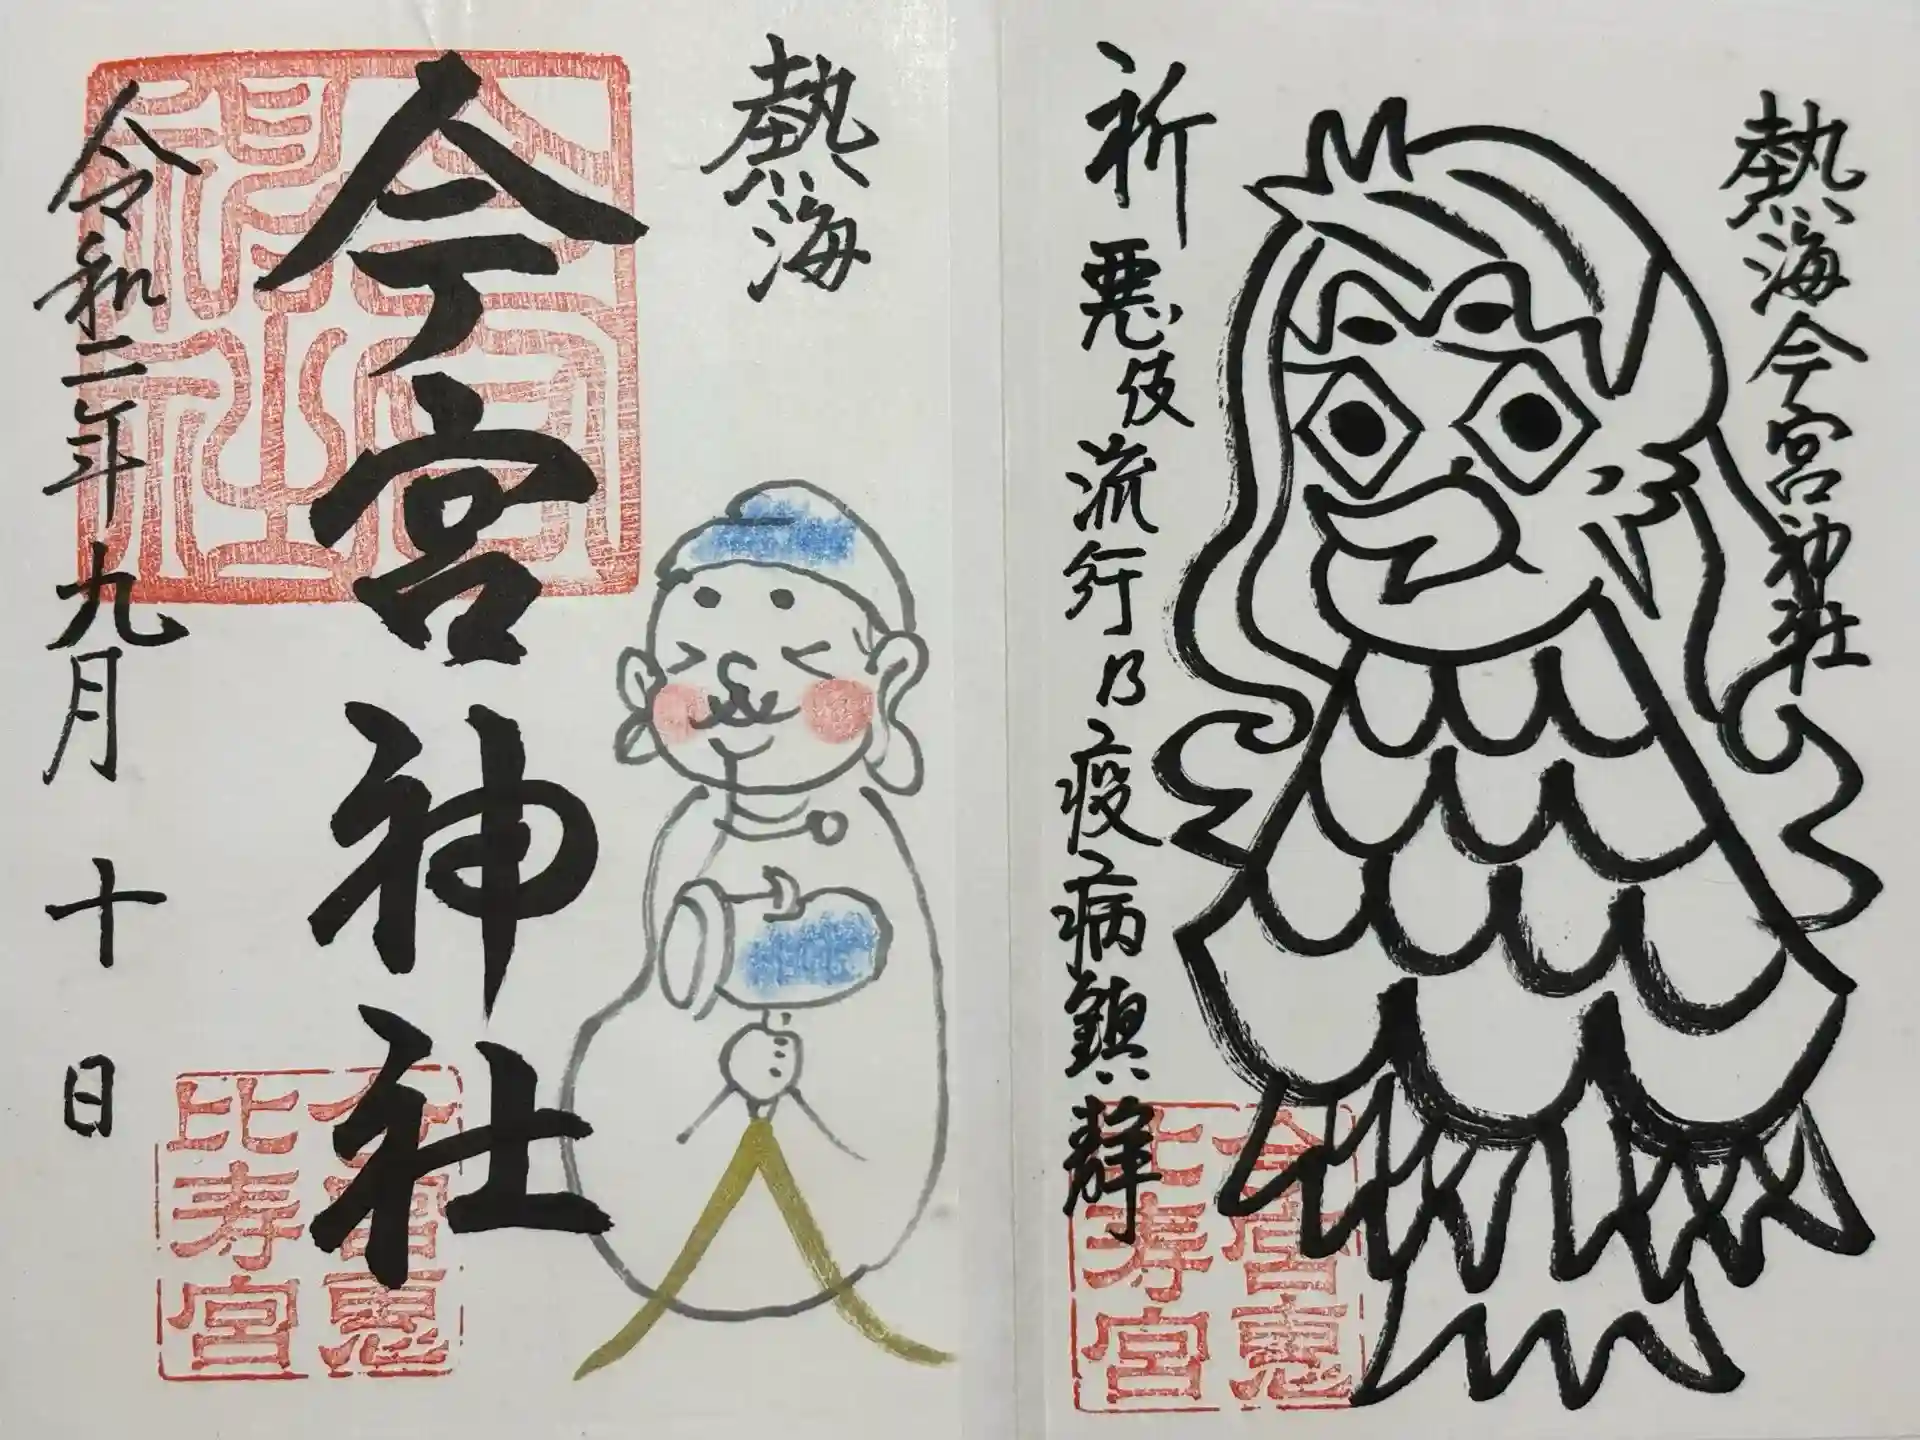 熱海今宮神社
祈 悪伎流行乃疫病鎮静
今宮恵
比寿宮
熱海
今宮神社
令和二年九月十日
今宮
神社
今宮恵
比寿宮